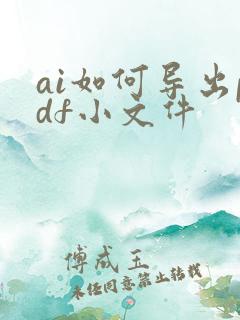 ai如何导出p
df小文件
傅成玉
未经同意禁止转载